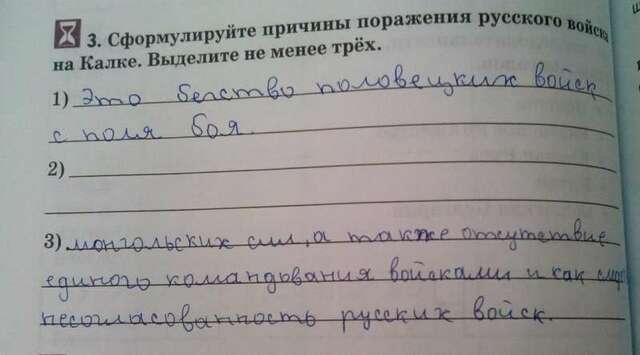 3. Сформулируйте причины поражения русского войска
на Калке. Выделите не менее трёх.
1) Это бегство половецких войск
с поля боя.
2)
3) монгольских сил, а также отсутствие
единого командования войсками и как
несогласованность русских войск.